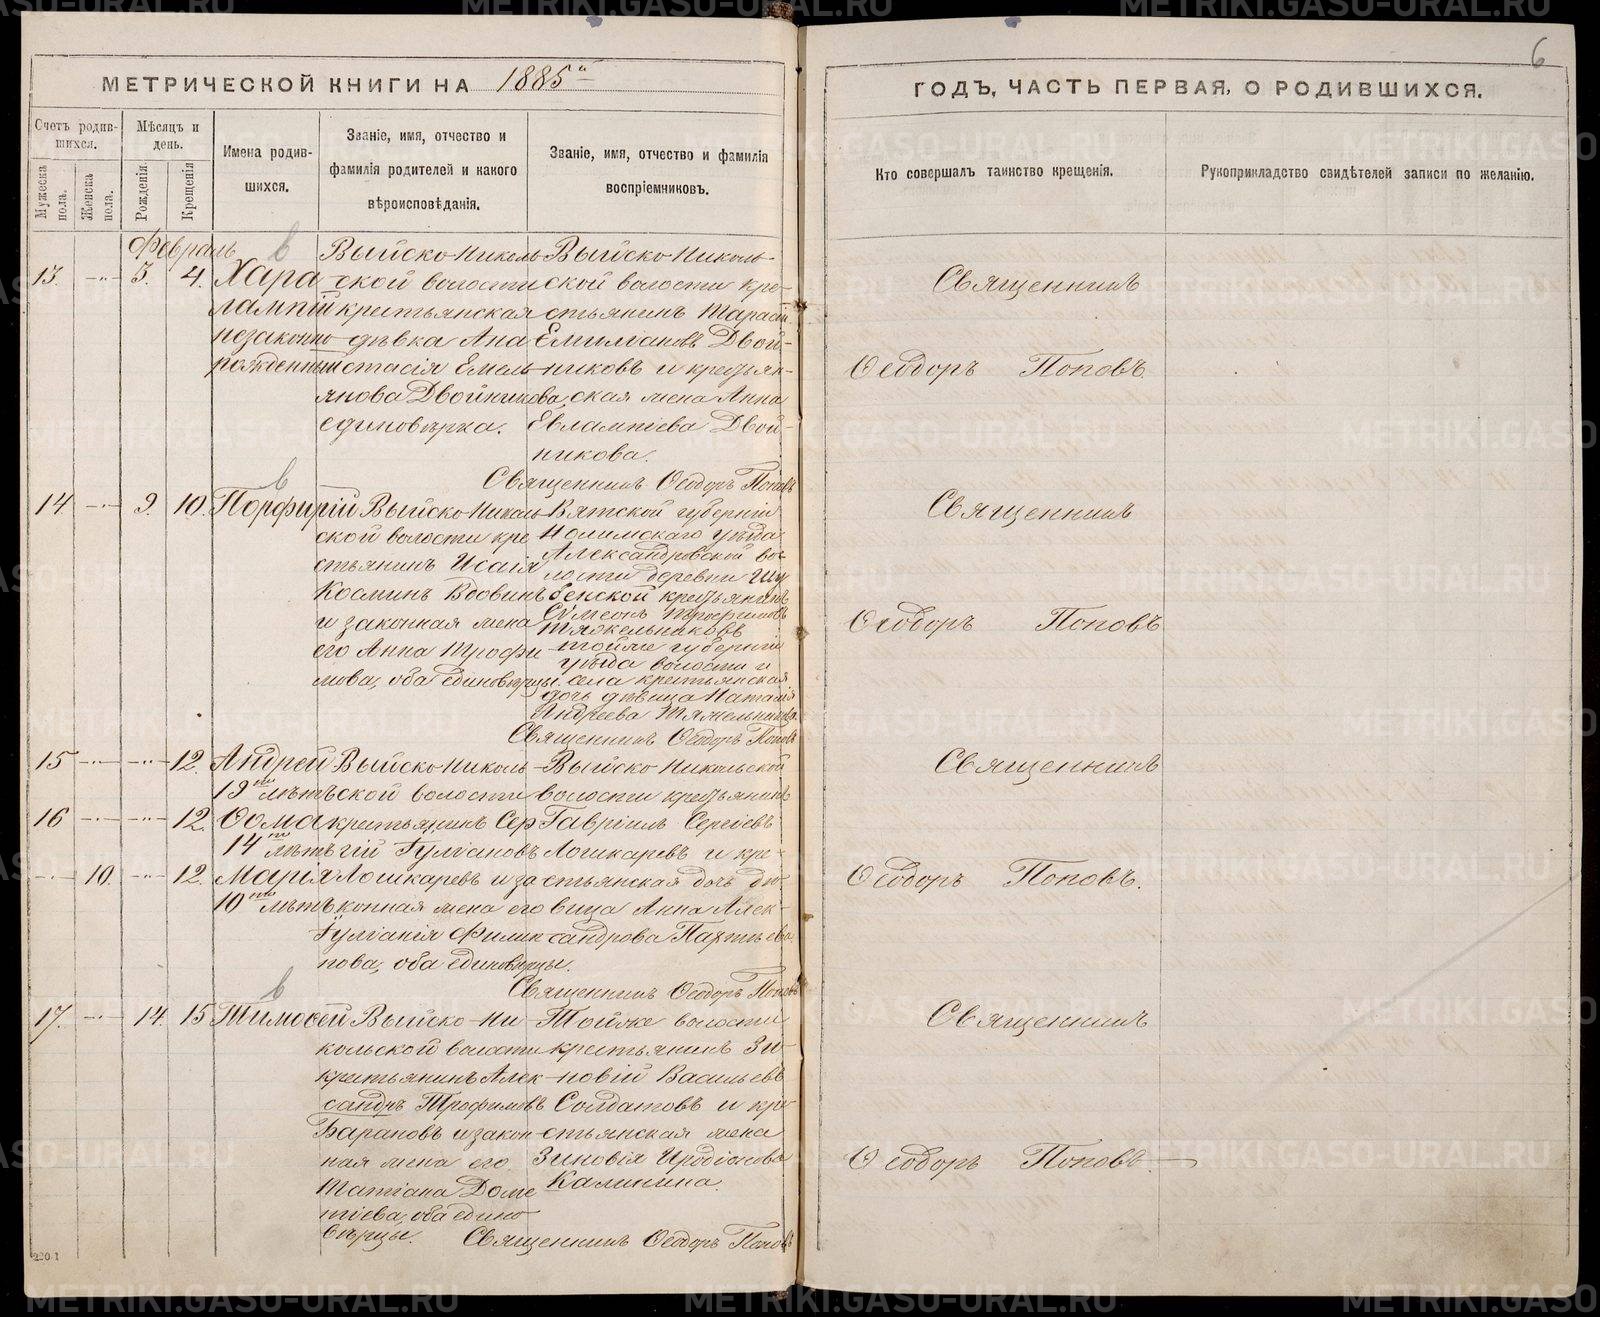 6
МЕТРИЧЕСКОЙ КНИГИ НА 1885й
ГОДЪ, ЧАСТЬ ПЕРВАЯ, О РОДИВШИХСЯ.
Счетъ родив-
шихся.
Мужеска
пола.
Женска
пола.
Мѣсяцъ и
день.
Рожденія
Крещенія
Имена родив-
шихся.
Званіе, имя, отчество и
фамилія родителей и какого
вѣроисповѣданія.
Званіе, имя, отчество и фамилія
воспріемниковъ.
Кто совершалъ таинство крещенія.
Рукоприкладство свидѣтелей записи по желанію.
Февраль
13. 3. 4.
Хара
лампій
незаконно
рожденный
Выйско-Николь
ской волости
крестьянская
дѣвка Ана
стасія Емель
янова Двойникова
единовѣрка.
Выйско-Николь-
ской волости кре-
стьянинъ Тарасій
Емилiановъ Двой-
никовъ и крестьян-
ская жена Анна
Евлампіева Двой-
никова.
Священникъ Ѳеодоръ Поповъ
Священникъ
Ѳеодоръ Поповъ.
14 9. 10.
Порфирій
Выйско-Николь
ской волости кре
стьянинъ Исаія
Косминъ Вдовинъ
и законная жена
его Анна Трофи
мова, оба единовѣрцы.
Вятской губерніи
Нолинскаго уѣзда
Александровской во
лости деревни
бенской крестьянинъ
Симеонъ Трофимовъ
Тяжельниковъ
тойже губерніи
уѣзда волости и
села крестьянская
дочь дѣвица Наталія
Андреева Тяжельникова.
Священникъ Ѳеодоръ Поповъ
Священникъ
Ѳеодоръ Поповъ
15 12.
Андрей
19ти лѣтъ
16 12.
Ѳома
14ти лѣтъ
10. 12.
Марія
10ти лѣтъ
Выйско-Николь
ской волости
крестьянинъ Сер
гій Гулiановъ
Лошкаревъ и за
конная жена его
Гулiанія Филип
пова, оба единовѣрцы.
Выйско Никольской
волости крестьянинъ
Гавріилъ Сергіевъ
Лошкаревъ и кре-
стьянская дочь дѣ-
вица Анна Алек-
сандрова
Священникъ Ѳеодоръ Поповъ
Священникъ
Ѳеодоръ Поповъ.
17. 14. 15
Тимоѳей
Выйско-Ни
кольской волости
крестьянинъ Алек
сандръ Трофимовъ
Барановъ и закон
ная жена его
Татіана Доме
тіева, оба едино
вѣрцы.
Тойже волости
крестьянинъ Зи-
новій Васильевъ
Солдатовъ и кре
стьянская жена
Зиновія Иродіонова
Калинина.
Священникъ Ѳеодоръ Поповъ
Священникъ
Ѳеодоръ Поповъ.
METRIKI.GASO-URAL.RU